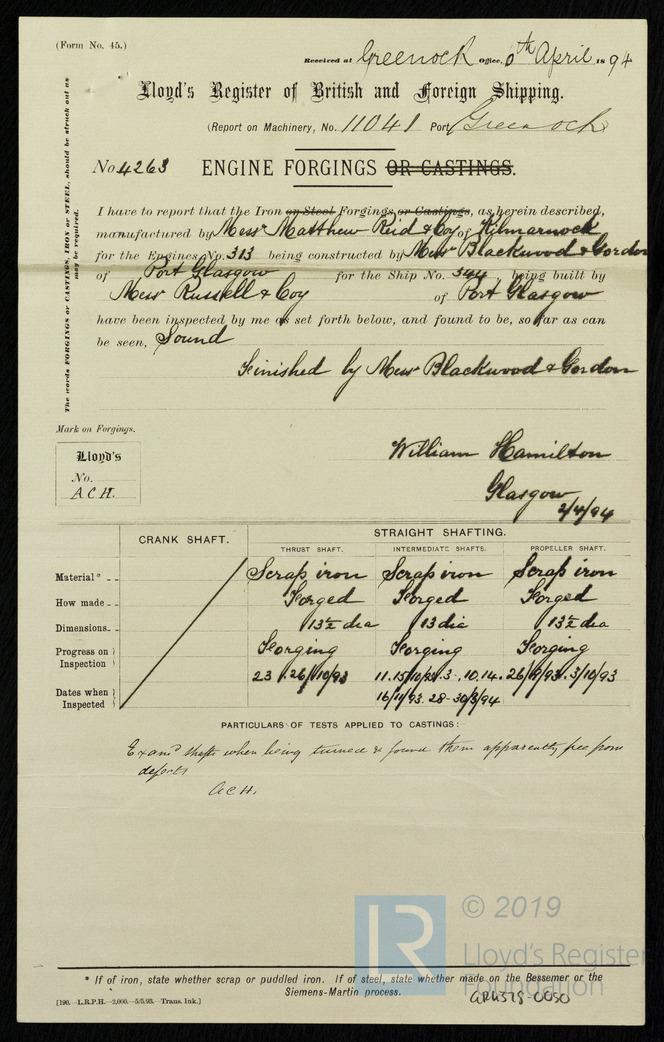 (Form No. 45.)
Received at Greenock Office, 6th April 1894
Lloyd's Register of British and Foreign Shipping.
(Report on Machinery, No. 11041 Port Greenock
No. 4263 ENGINE FORGINGS OR CASTINGS.
The words FORGINGS or CASTINGS, IRON or STEEL, should be struck out as may be required.
I have to report that the Iron or Steel Forgings or Castings, as herein described,
manufactured by Messrs Matthew Reid & Coy of Kilmarnock
for the Engines No. 313 being constructed by Messrs Blackwood & Gordon
of Port Glasgow for the Ship No. 344, being built by
Messrs Russell & Coy of Port Glasgow
have been inspected by me as set forth below, and found to be, so far as can
be seen, Sound
Finished by Messrs Blackwood & Gordon
Mark on Forgings.
Lloyd's
No.
A C H.
William Hamilton
Glasgow
2/4/94
CRANK SHAFT. STRAIGHT SHAFTING.
THRUST SHAFT. INTERMEDIATE SHAFTS. PROPELLER SHAFT.
Material* Scrap iron Scrap iron Scrap iron
How made Forged Forged Forged
Dimensions 13½ dia 13 dia 13½ dia
Progress on Inspection Forging Forging Forging
Dates when Inspected 23. 26/10/93 11. 15/10/93. 3. 10. 14. 26/9/93. 3/10/93
16/11/93. 28-30/3/94
PARTICULARS OF TESTS APPLIED TO CASTINGS:
Examd shafts when being turned & found them apparently free from
defects
A C H.
* If of iron, state whether scrap or puddled iron. If of steel, state whether made on the Bessemer or the
Siemens-Martin process.
[190.—L.R.P.H.—2,000.—5/5/93.—Trans. Ink.]
GRK378-0050
LR
© 2019
Lloyd's Register
Foundation